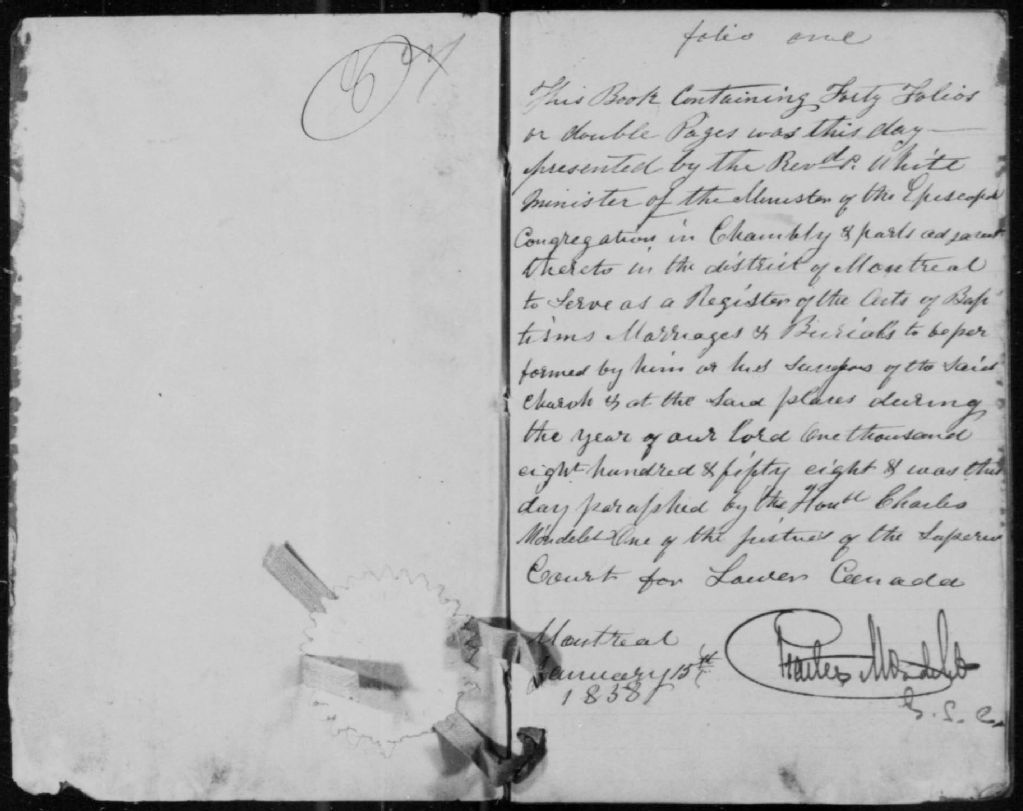 folio one
This Book Containing Forty Folios
or double Pages was this day
presented by the Revd P. White
Minister of the Minister of the Episcopal
Congregation in Chambly & parts adjacent
thereto in the district of Montreal
to Serve as a Register of the Acts of Bap
tisms Marriages & Burials to be per
formed by him or his of the Said
Church & at the Said places during
the year of our Lord One thousand
eight hundred & fifty eight & was this
day paraphed by the Honbl Charles
Mondelet One of the justices of the Superior
Court for Lower Canada
Montreal
January 15th
1858
Charles Mondelet
J. S. C.